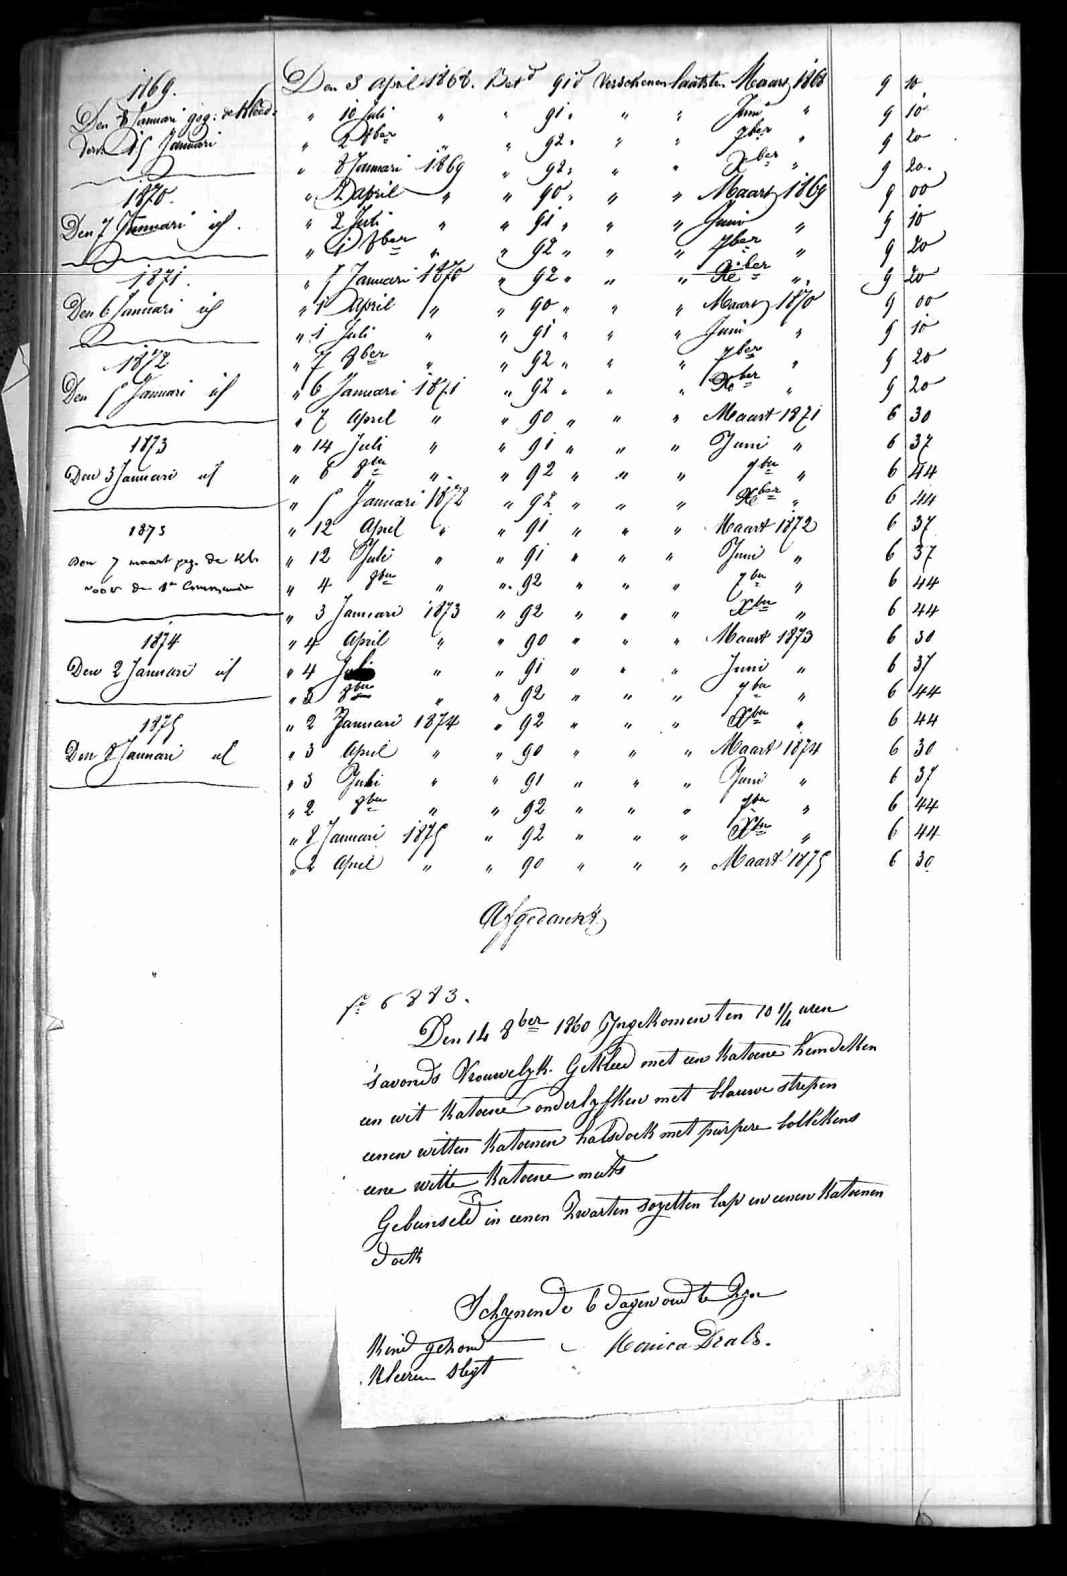 1869.
Den 8 Januari geg: de Kleed:
1870.
Den 7 Januari id.
1871.
Den 6 Januari id
1872
Den 5 Januari id
1873
Den 3 Januari id
1873
Den 7 maart geg. de kl.
voor de 1e Communie
1874
Den 2 Januari id
1875
Den 8 Januari id
Den 3 April 1868. Betd 91 d Verschenen laatsten Maart 1868 9 10
" 10 Juli " " 91 " " " Juni " 9 10
" 2 8ber " " 92 " " " 7ber " 9 20
" 8 Januari 1869 " 92 " " " Xber " 9 20
" 2 April " " 90 " " " Maart 1869 9 00
" 2 Juli " " 91 " " " Juni " 9 10
" 1 8ber " " 92 " " " 7ber " 9 20
" 7 Januari 1870 " 92 " " " Xber " 9 20
" 1 April " " 90 " " " Maart 1870 9 00
" 1 Juli " " 91 " " " Juni " 9 10
" 7 8ber " " 92 " " " 7ber " 9 20
" 6 Januari 1871 " 92 " " " Xber " 9 20
" 7 April " " 90 " " " Maart 1871 6 30
" 14 Juli " " 91 " " " Juni " 6 37
" 6 8ber " " 92 " " " 7ber " 6 44
" 5 Januari 1872 " 92 " " " Xber " 6 44
" 12 April " " 91 " " " Maart 1872 6 37
" 12 Juli " " 91 " " " Juni " 6 37
" 4 8ber " " 92 " " " 7ber " 6 44
" 3 Januari 1873 " 92 " " " Xber " 6 44
" 4 April " " 90 " " " Maart 1873 6 30
" 4 Juli " " 91 " " " Juni " 6 37
" 3 8ber " " 92 " " " 7ber " 6 44
" 2 Januari 1874 " 92 " " " Xber " 6 44
" 3 April " " 90 " " " Maart 1874 6 30
" 3 Juli " " 91 " " " Juni " 6 37
" 2 8ber " " 92 " " " 7ber " 6 44
" 8 Januari 1875 " 92 " " " Xber " 6 44
" 2 April " " 90 " " " Maart 1875 6 30
Afgedankt
fo 6883.
Den 14 8ber 1860 Ingekomen ten 10 1/4 uren
's avonds Vrouwelyk. Gekleed met een Katoene hemdeken
een wit Katoene onderlyfken met blauwe strepen
eenen witten Katoenen halsdoek met purpere bollekens
eene witte Katoene muts
Gebunseld in eenen Zwarten sayetten lap en eenen Katoenen
doek
Schynende 6 dagen oud te Zyn
Kind gezond
Monica Deals.
Kleeren slegt